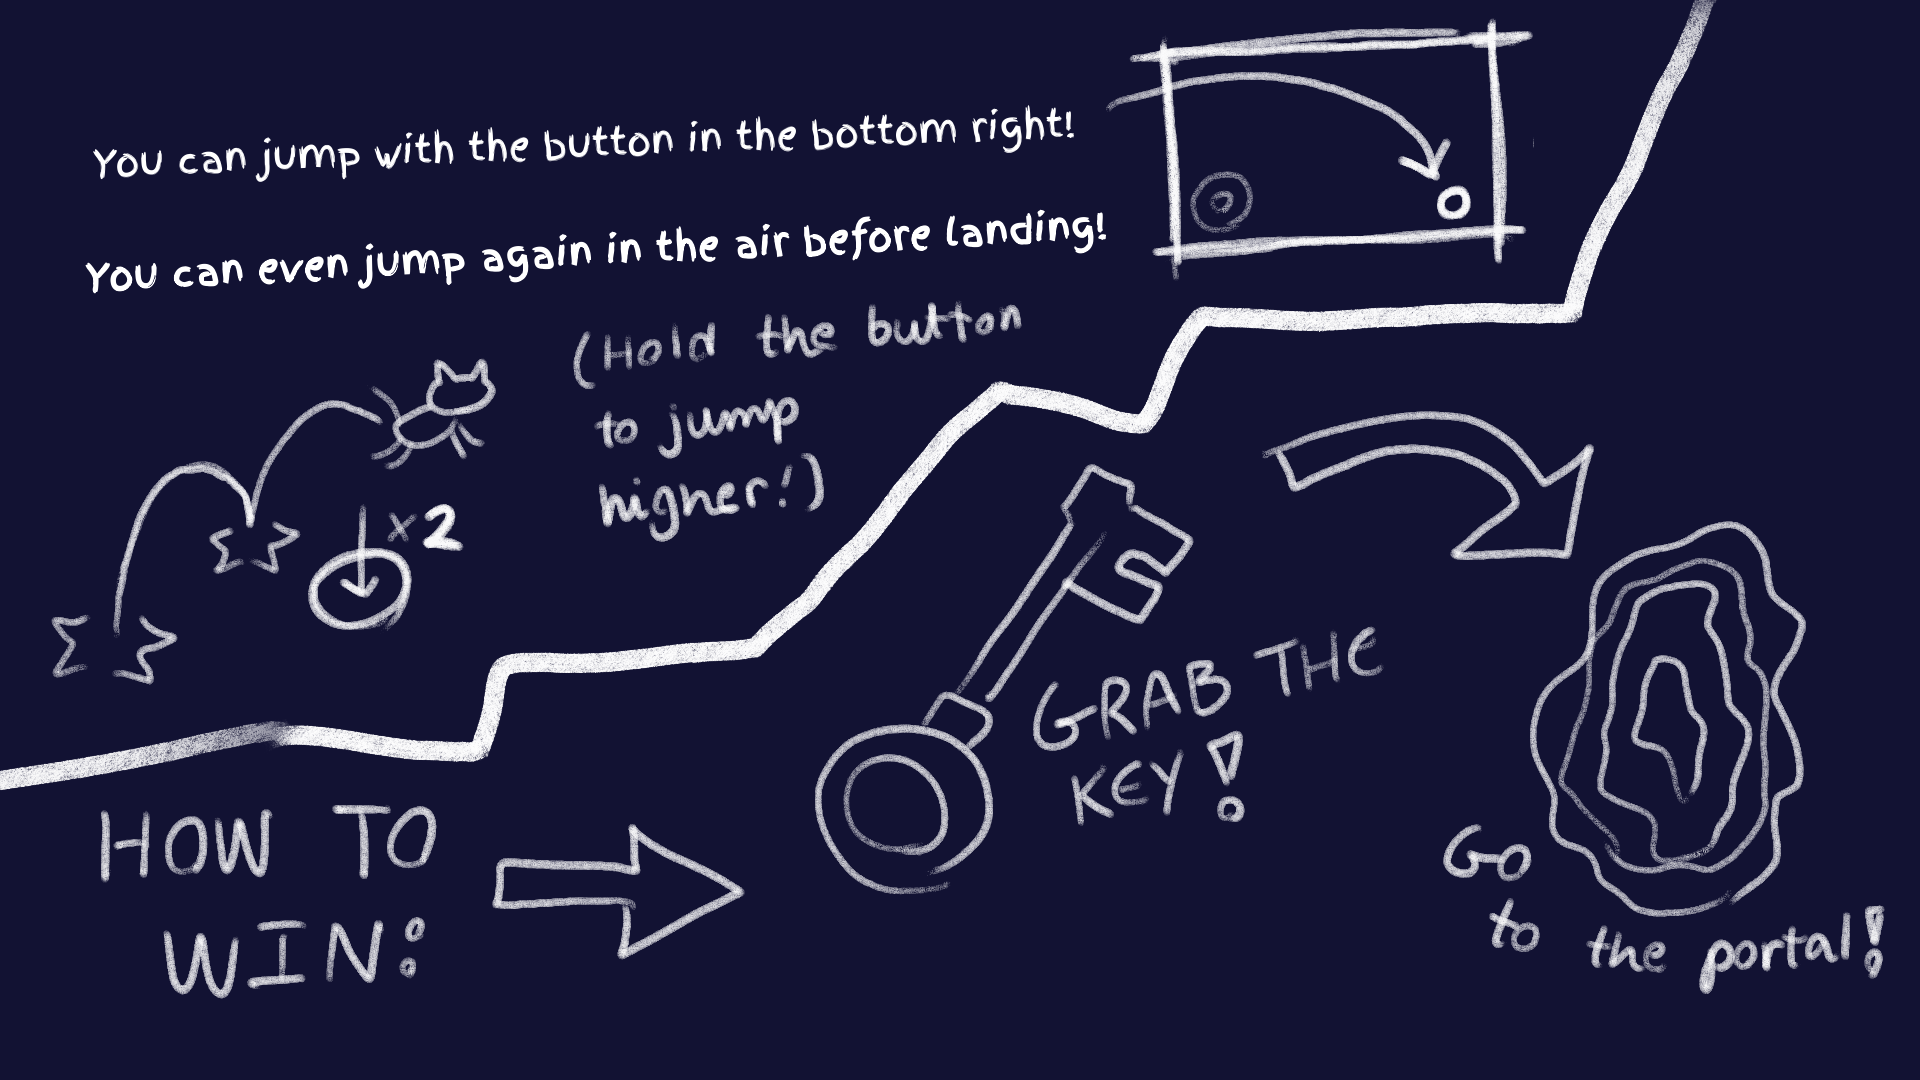 You can jump with the button in the bottom right!
You can even jump again in the air before landing!
(Hold the button
to jump
higher!)
x2
HOW TO
WIN:
GRAB THE
KEY!
GO
to the portal!